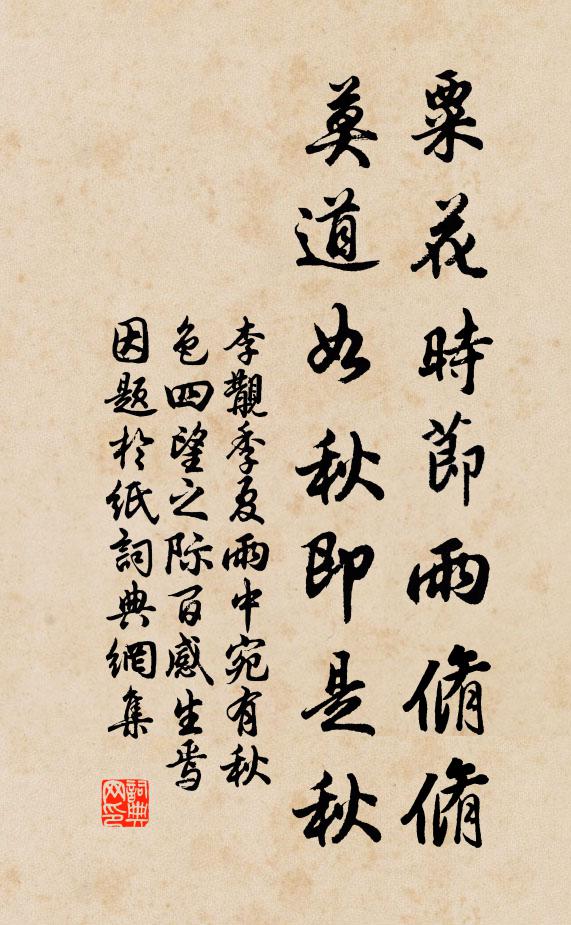 粟花時節雨翛翛
莫道如秋即是秋
李覯季夏雨中宛有秋
色四望之際百感生焉
因題於紙詞典網集
詞典网印